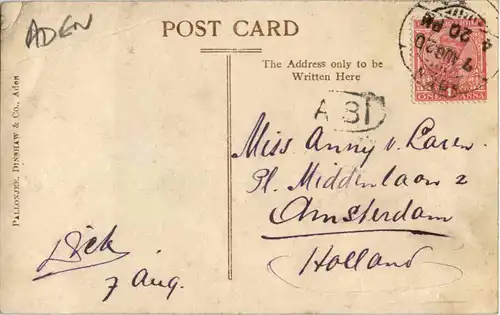 ADEN
POST CARD
The Address only to be
Written Here
PALLONJEE, DINSHAW & CO., Aden
7 AUG 20
20 PM
ONE ANNA
A BI
Miss Anny v. Laren.
Pl. Middenlaan 2
Amsterdam
Holland
Dick
7 Aug.